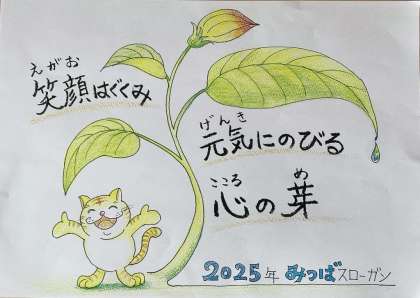 えがお
笑顔はぐくみ
げんき
元気にのびる
こころ め
心の芽
2025年 みつばスローガン